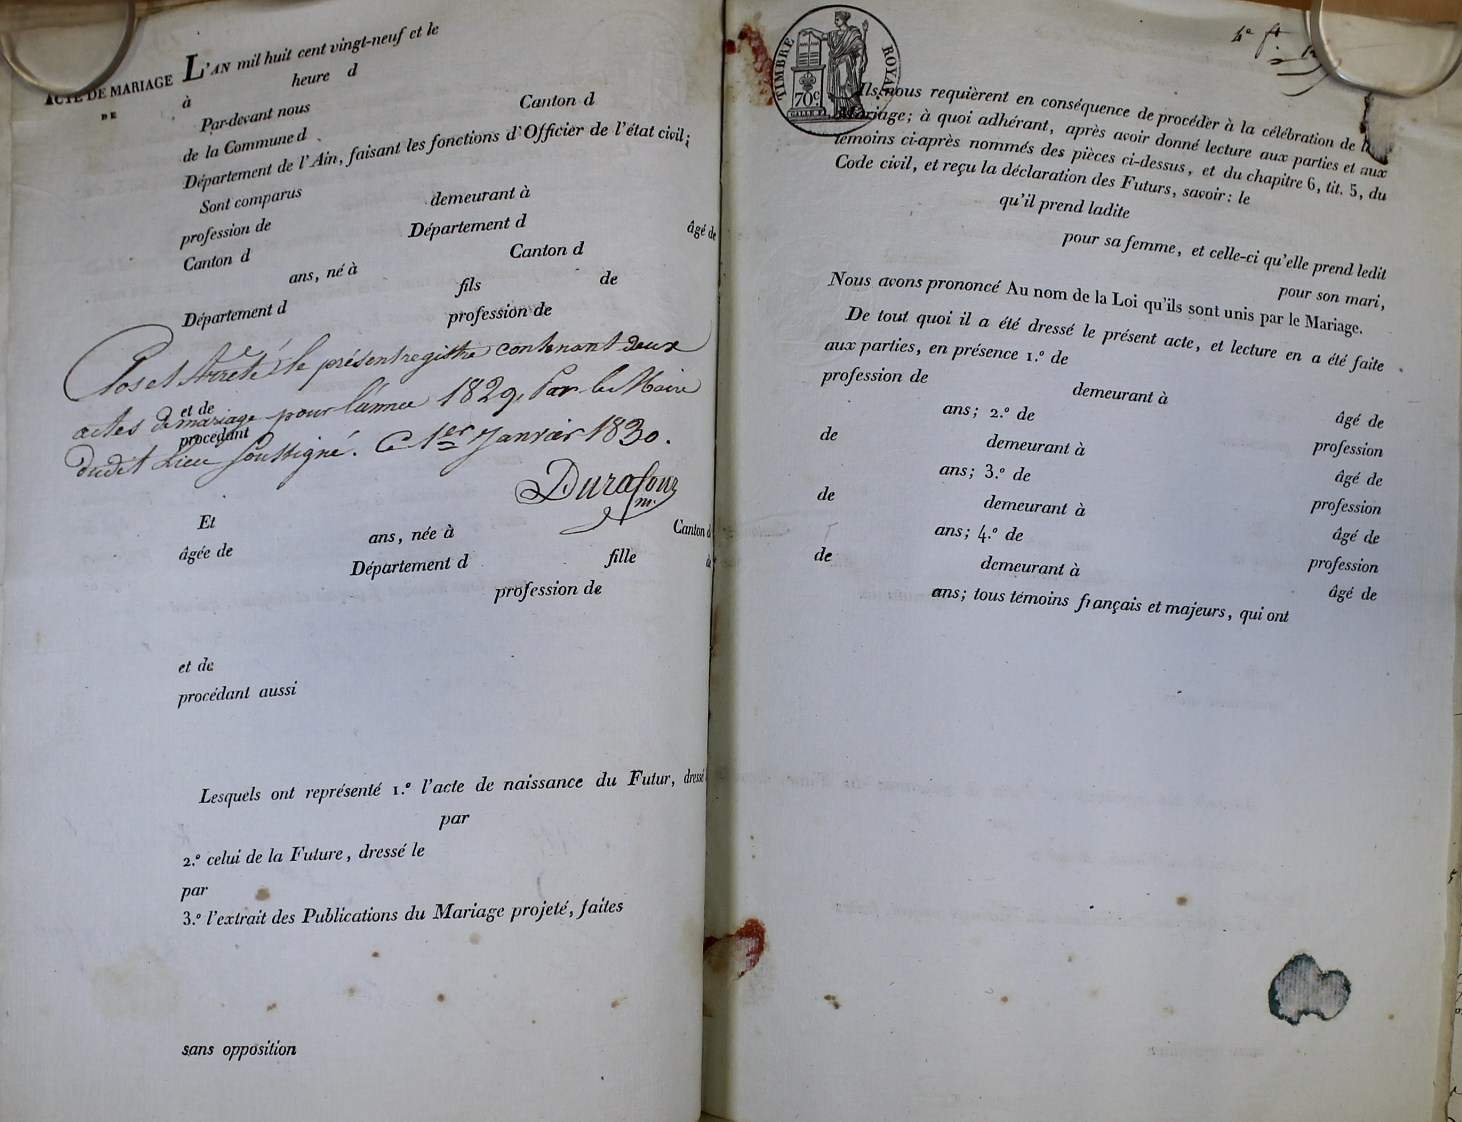 ACTE DE MARIAGE
DE
L'AN mil huit cent vingt-neuf et le
à heure d
Par-devant nous
de la Commune d Canton d
Département de l'Ain, faisant les fonctions d'Officier de l'état civil;
Sont comparus
profession de demeurant à
Canton d Département d âgé de
ans, né à Canton d
Département d fils de
profession de
Clos et Arrêté le présent registre contenant deux
actes de mariage pour l'année 1829, Par le Maire
et de
procédant
dudit Lieu soussigné. Ce 1er Janvier 1830.
Durafour
m.
Et
âgée de ans, née à Canton d
Département d fille de
profession de
et de
procédant aussi
Lesquels ont représenté 1.º l'acte de naissance du Futur, dressé
par
2.º celui de la Future, dressé le
par
3.º l'extrait des Publications du Mariage projeté, faites
sans opposition
4e ft
TIMBRE ROYAL
70c
Ils nous requièrent en conséquence de procéder à la célébration de
Mariage; à quoi adhérant, après avoir donné lecture aux parties et aux
témoins ci-après nommés des pièces ci-dessus, et du chapitre 6, tit. 5, du
Code civil, et reçu la déclaration des Futurs, savoir: le
qu'il prend ladite
pour sa femme, et celle-ci qu'elle prend ledit
pour son mari,
Nous avons prononcé Au nom de la Loi qu'ils sont unis par le Mariage.
De tout quoi il a été dressé le présent acte, et lecture en a été faite
aux parties, en présence 1.º de
profession de demeurant à
ans; 2.º de âgé de
de demeurant à profession
ans; 3.º de âgé de
de demeurant à profession
ans; 4.º de âgé de
de demeurant à profession
ans; tous témoins français et majeurs, qui ont âgé de